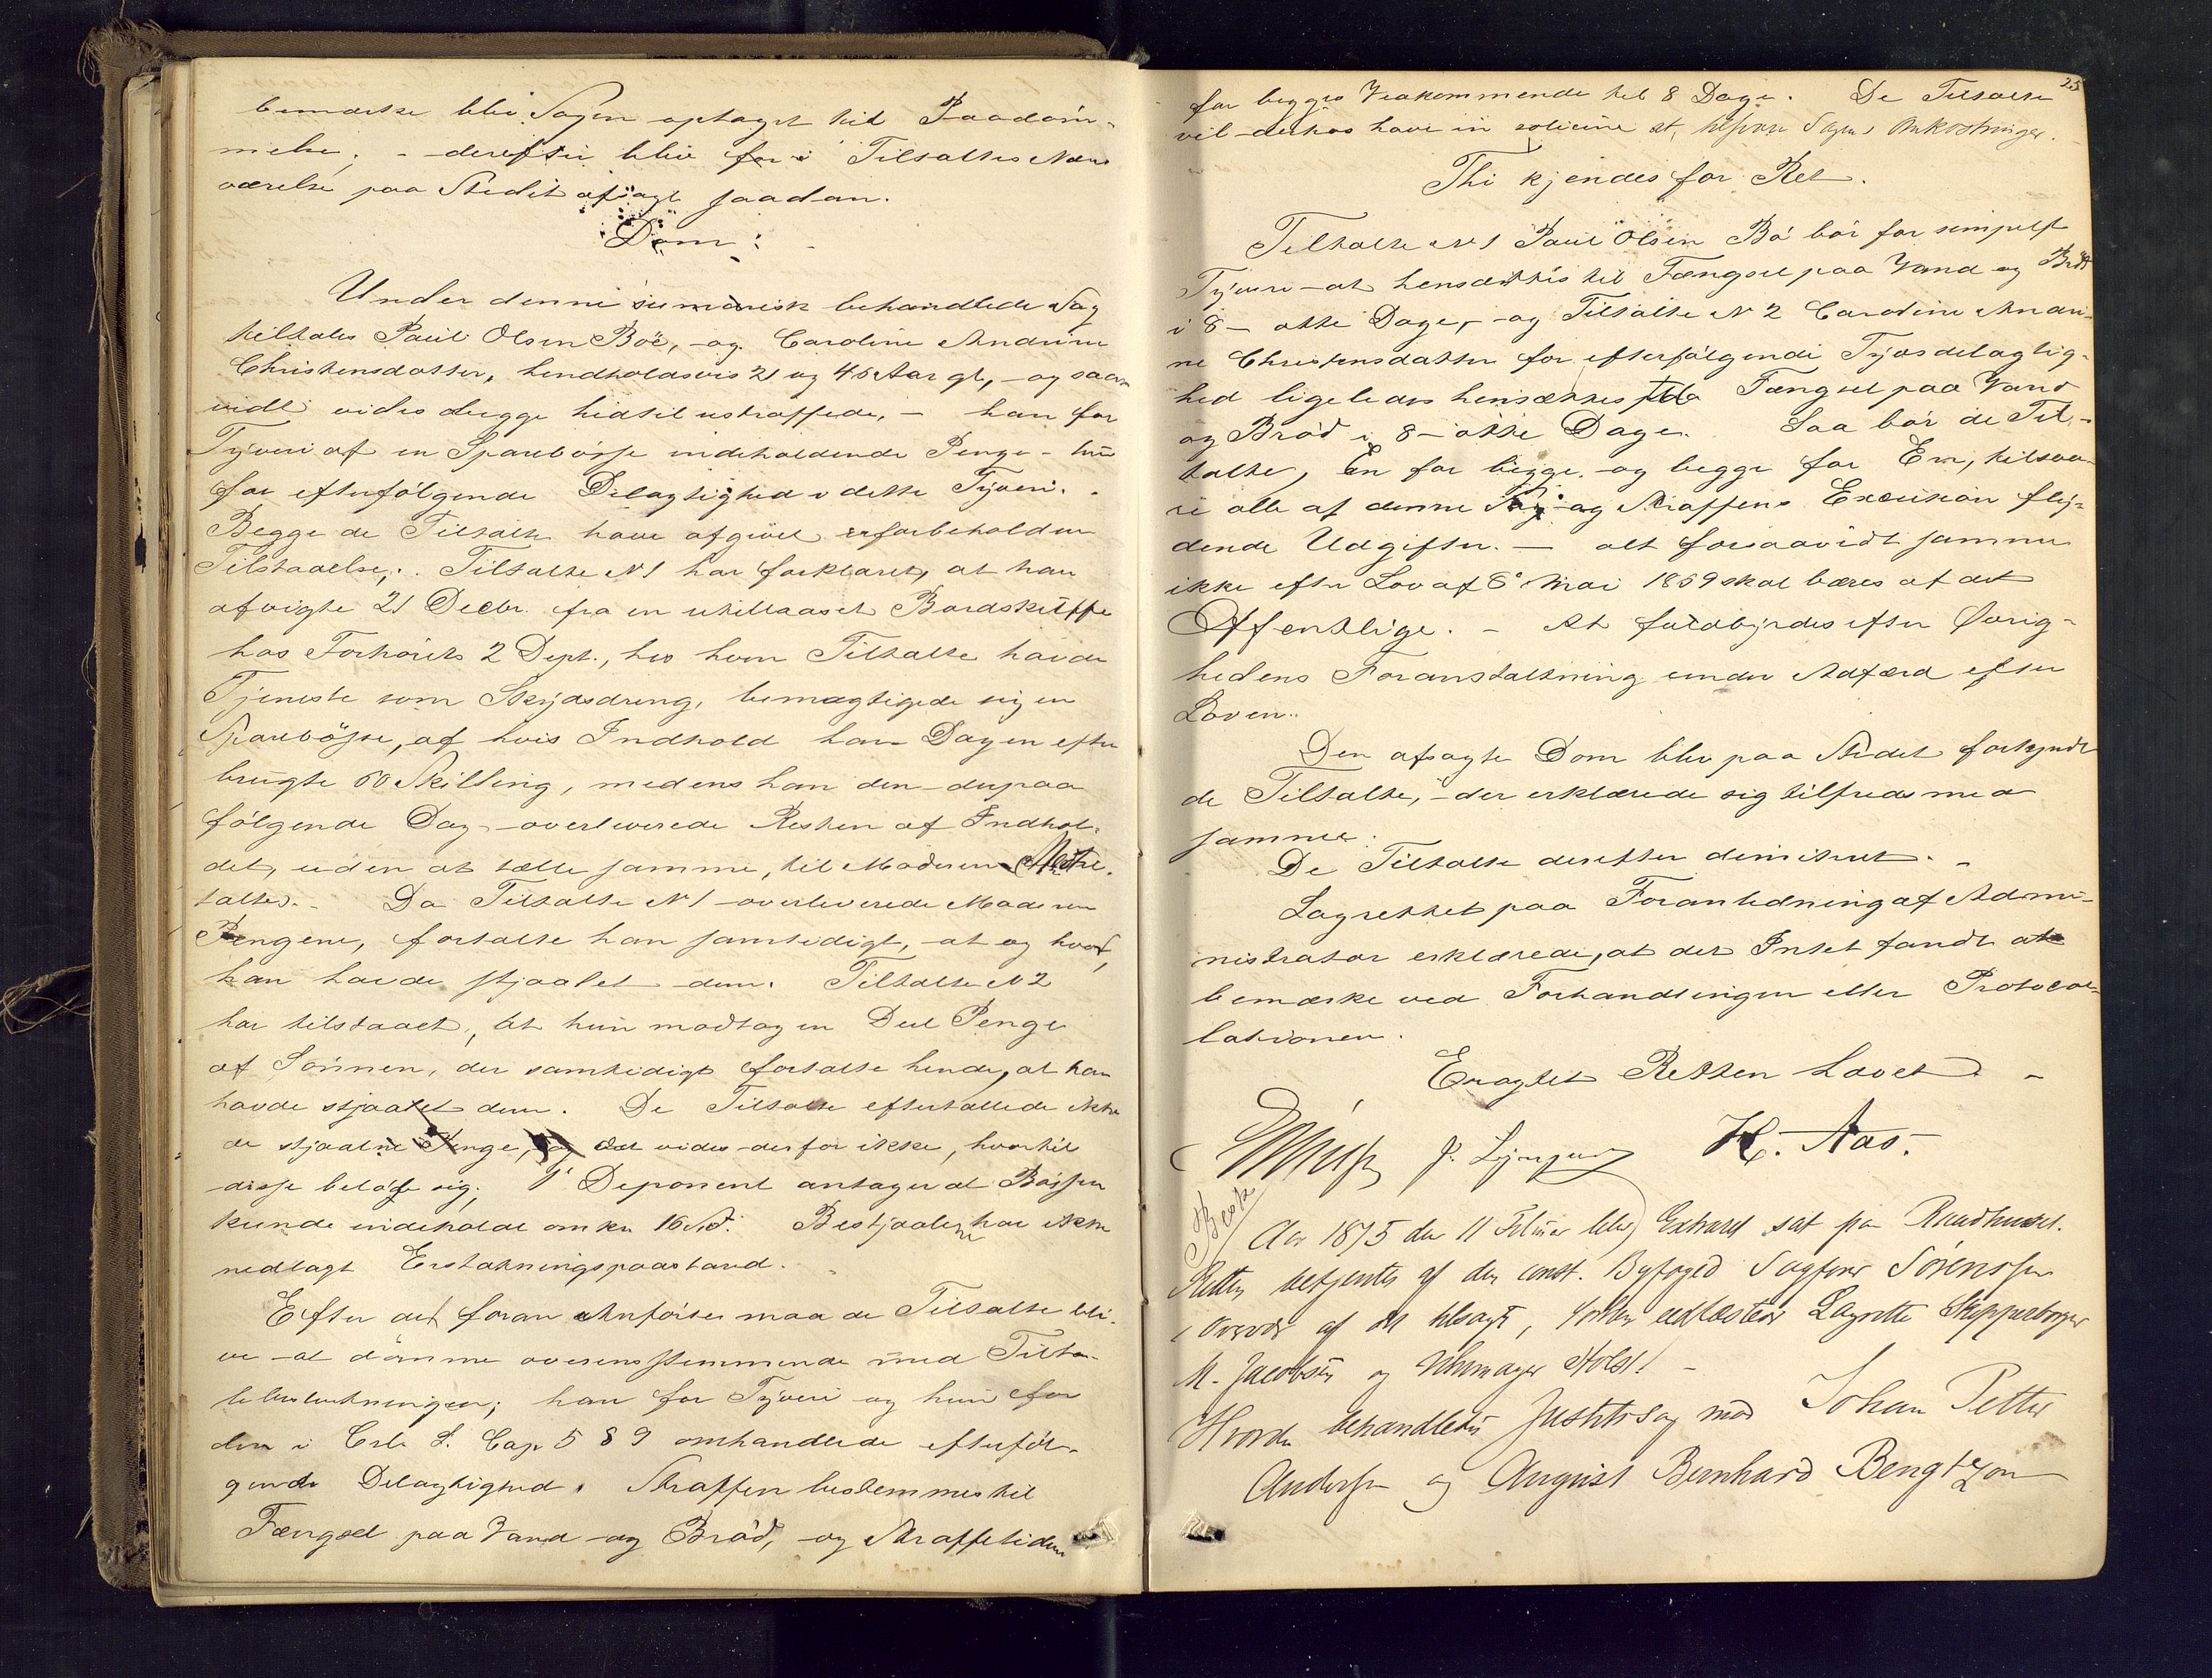 bemærke blev Sagen optaget til Paadöm-
melse, - derefter blev for i Tiltaltes Nær
værelse paa Stedet afsagt saadan.
Dom:
Under denne sumarisk behandlede Sag
tiltales Paul Olsen Böe, og Caroline Andrine
Christensdatter, hendholdsvis 21 og 45 Aar gl, - og saa-
vidt vides begge hidtil ustraffede, - han for
Tyveri af en Sparebösse indeholdende Penge - hun
for efterfölgende Delagtighed i dette Tyveri.
Begge de Tiltalte have afgivet uforbeholden
Tilstaaelse; Tiltalte N 1 har forklaret, at han
afvigte 21 Decbr. fra en utillaaset Bordskuffe
hos Forhörets 2 Dept., hos hvem Tiltalte havde
Tjeneste som Skydsdreng, bemægtigede sig en
Sparebösse, af hvis Indhold han Dagen efter
brugte 60 Skilling, medens han den derpaa
fölgende Dag overleverede Resten af Indhol-
det, uden at tælle samme, til Moderen Medtil-
taltes. - Da Tiltalte N 1 overleverede Moderen
Pengene, fortalte han samtidigt, at og hvor,
han havde stjaalet dem. Tiltalte N 2
har tilstaaet, at hun modtog en Deel Penge
af Sönnen, der samtidigt fortalte hende, at han
havde stjaalet dem. De Tiltalte eftertallede ikke
de stjaalne Penge, og det vides derfor ikke, hvortil
disse belöbe sig; 1 Deponent antager at Bössen
kunde indeholde omkr 16 Mk. Bestjaalne har ikke
nedlagt Erstatningspaastand.
Efter det foran Anförte maa de Tiltalte bli-
ve at dömme overensstemmende med Tilta-
lebeslutningen; han for Tyveri og hun for
den i Crl. L. Cap 5 § 9 omhandlede efterföl-
gende Delagtighed. Straffen bestemmes til
Fængsel paa Vand og Bröd, og Straffetiden
25
for begges Vedkommende til 8 Dage. De Tiltalte
vil derhos have in solidum at tilsvare Sagens Omkostninger.
Thi kjendes for Ret.
Tiltalte N 1 Paul Olsen Bö bör for simpelt
Tyveri at hensættes til Fængsel paa Vand og Bröd
i 8 - otte Dage, - og Tiltalte N 2 Caroline Andri-
ne Christensdatter for efterfölgende Tyvsdelagtig-
hed ligeledes hensættes til Fængsel paa Vand
og Bröd i 8 - otte Dage. Saa bör de Til-
talte, En for begge og begge for En, tilsva-
re alle af denne Sag og Straffens Execution fly-
dende Udgifter. - alt forsaavidt samme
ikke efter Lov af 6 Mai 1859 skal bæres af det
Offentlige. - At fuldbyrdes efter Øvrig-
hedens Foranstaltning under Adfærd efter
Loven.
Den afsagte Dom blev paa Stedet forkyndt
de Tiltalte, - der erklærede sig tilfreds med
samme.
De Tiltalte derefter dimitteret. -
Lagrettet paa Foranledning af Admi-
nistrator erklærede, at det Intet fandt at
bemærke ved Forhandlingen eller Protocol-
lationen.
Eragtet Retten hævet -
H. Aas.
Besk
Aar 1875 den 11 Februar blev Extraret sat paa Raadhuset.
Retten betjentes af den const. Byfoged Sagfører Sörenssen
i Overvær af det tilsagte, forhen edfæstede Lagrette Skipperborger
M. Jacobsen og Uhrmager Holst. -
Hvorda behandledes Justitssag mod Johan Petter
Anderssen og August Bernhard Bengtzon